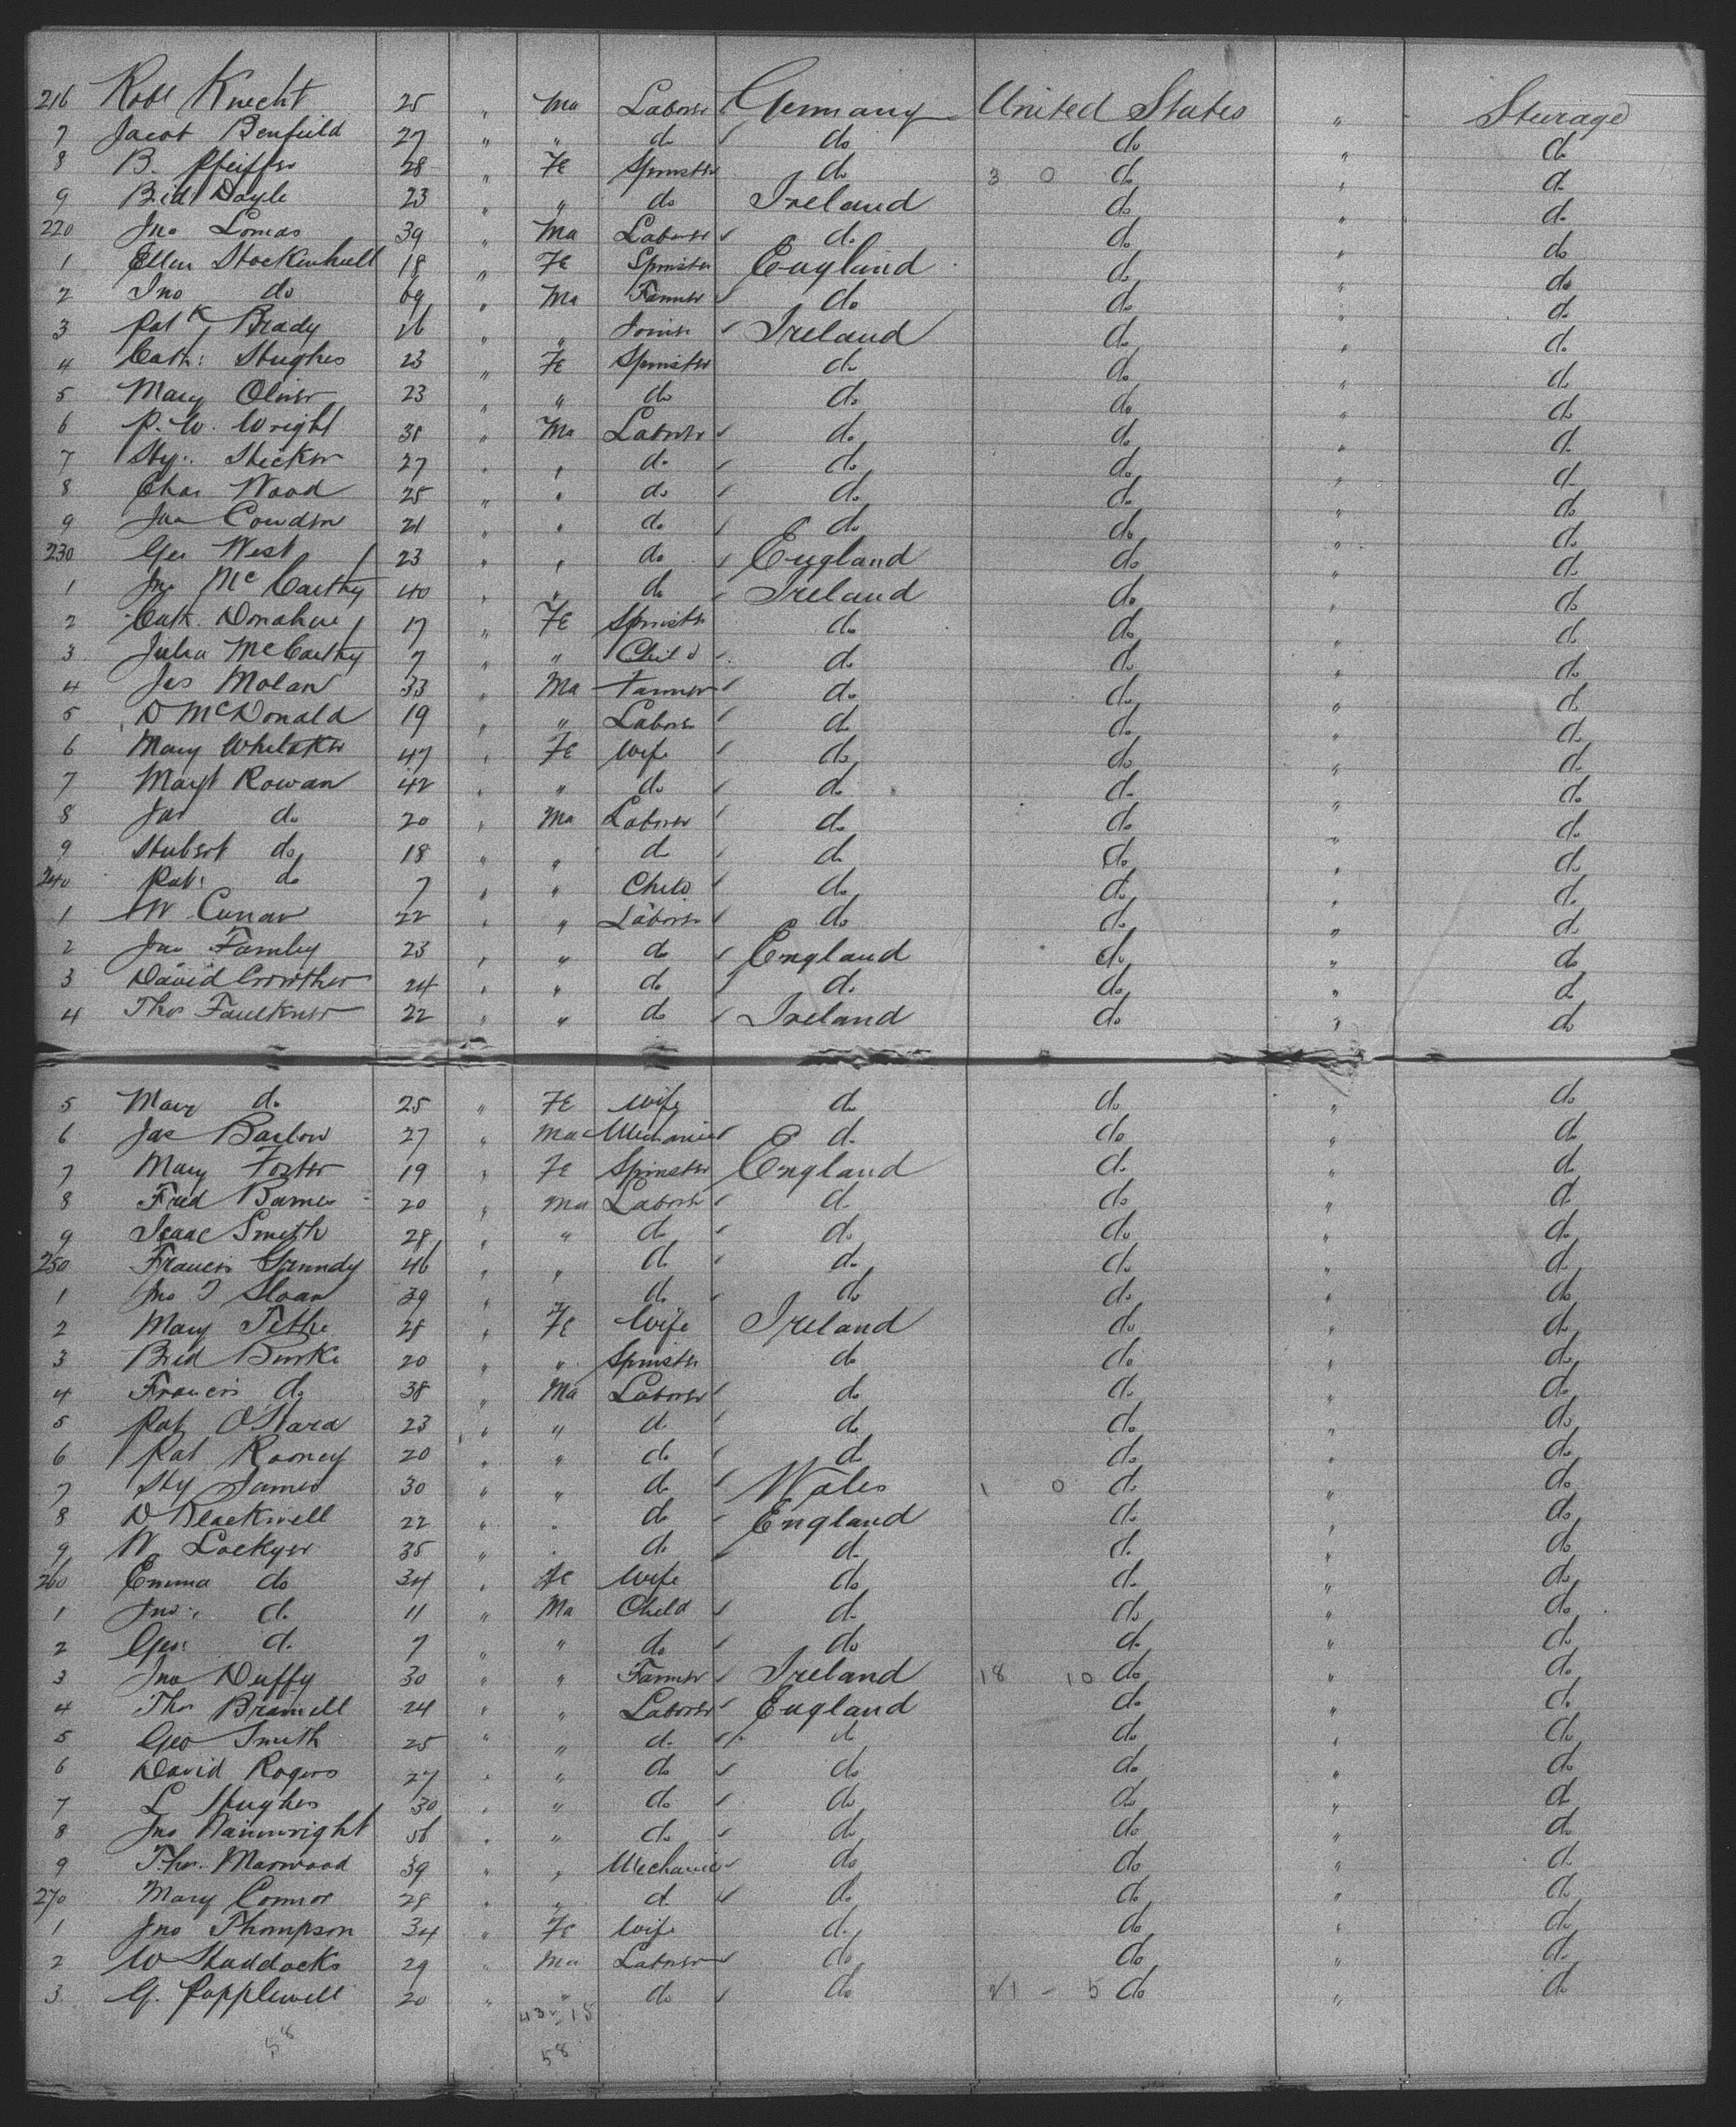 216 Robt Knecht 25 " Ma Laborer Germany United States " Steerage
7 Jacob Benfield 27 " " do do do " do
8 B. Pfeiffer 28 " Fe Spinster do 3 0 do " do
9 Brid Doyle 23 " " do Ireland do " do
220 Jno Lomas 39 " Ma Laborer do do " do
1 Ellen Stockenhull 18 " Fe Spinster England do " do
2 Jno do 69 " Ma Farmer do do " do
3 Patk Brady 26 " " Ireland do " do
4 Cath: Hughes 23 " Fe Spinster do do " do
5 Mary Oliver 23 " " do do do " do
6 P. W. Wright 38 " Ma Laborer do do " do
7 Hy: 27 " " do do do " do
8 Chas Wood 25 " " do do do " do
9 Jas Cowden 21 " " do do do " do
230 Geo West 23 " " do England do " do
1 Jno McCarthy 40 " " do Ireland do " do
2 Cath. Donahue 17 " Fe Spinster do do " do
3 Julia McCarthy 7 " " Child do do " do
4 Jas Molan 33 " Ma Farmer do do " do
5 D McDonald 19 " " Laborer do do " do
6 Mary Whitaker 47 " Fe Wife do do " do
7 Margt Rowan 42 " " do do do " do
8 Jas do 20 " Ma Laborer do do " do
9 Hubert do 18 " " do do do " do
240 Pat: do 7 " " Child do do " do
1 W Curran 22 " " Laborer do do " do
2 Jno Farnley 23 " " do England do " do
3 David Crowther 24 " " do do do " do
4 Thos Faulkner 22 " " do Ireland do " do
5 Mary do 25 " Fe Wife do do " do
6 Jas Barlow 27 " Ma Mechanic do do " do
7 Mary Foster 19 " Fe Spinster England do " do
8 Fred Barnes 20 " Ma Laborer do do " do
9 Isaac Smith 28 " " do do do " do
250 Francis Grundy 46 " " do do do " do
1 Jno T Sloan 39 " " do do do " do
2 Mary 28 " Fe Wife Ireland do " do
3 Brid Burke 20 " " Spinster do do " do
4 Francis do 38 " Ma Laborer do do " do
5 Pat O'Hara 23 " " do do do " do
6 Pat Rooney 20 " " do do do " do
7 Hy James 30 " " do Wales 1 0 do " do
8 D Blackwell 22 " " do England do " do
9 W Lockyer 35 " " do do do " do
260 Emma do 34 " Fe Wife do do " do
1 Jno: do 11 " Ma Child do do " do
2 Geo: do 7 " " do do do " do
3 Jno Duffy 30 " " Farmer Ireland 18 10 do " do
4 Thos Bramell 24 " " Laborer England do " do
5 Geo Smith 25 " " do do do " do
6 David Rogers 27 " " do do do " do
7 L Hughes 30 " " do do do " do
8 Jno Wainwright 56 " " do do do " do
9 Thos. Marwood 39 " " Mechanic do do " do
270 Mary Connor 28 " " do do do " do
1 Jno Thompson 34 " Fe Wife do do " do
2 W Haddocks 29 " Ma Laborer do do " do
3 G. Popplewell 20 " " do do 21 - 5 do " do
43 - 15
58 58